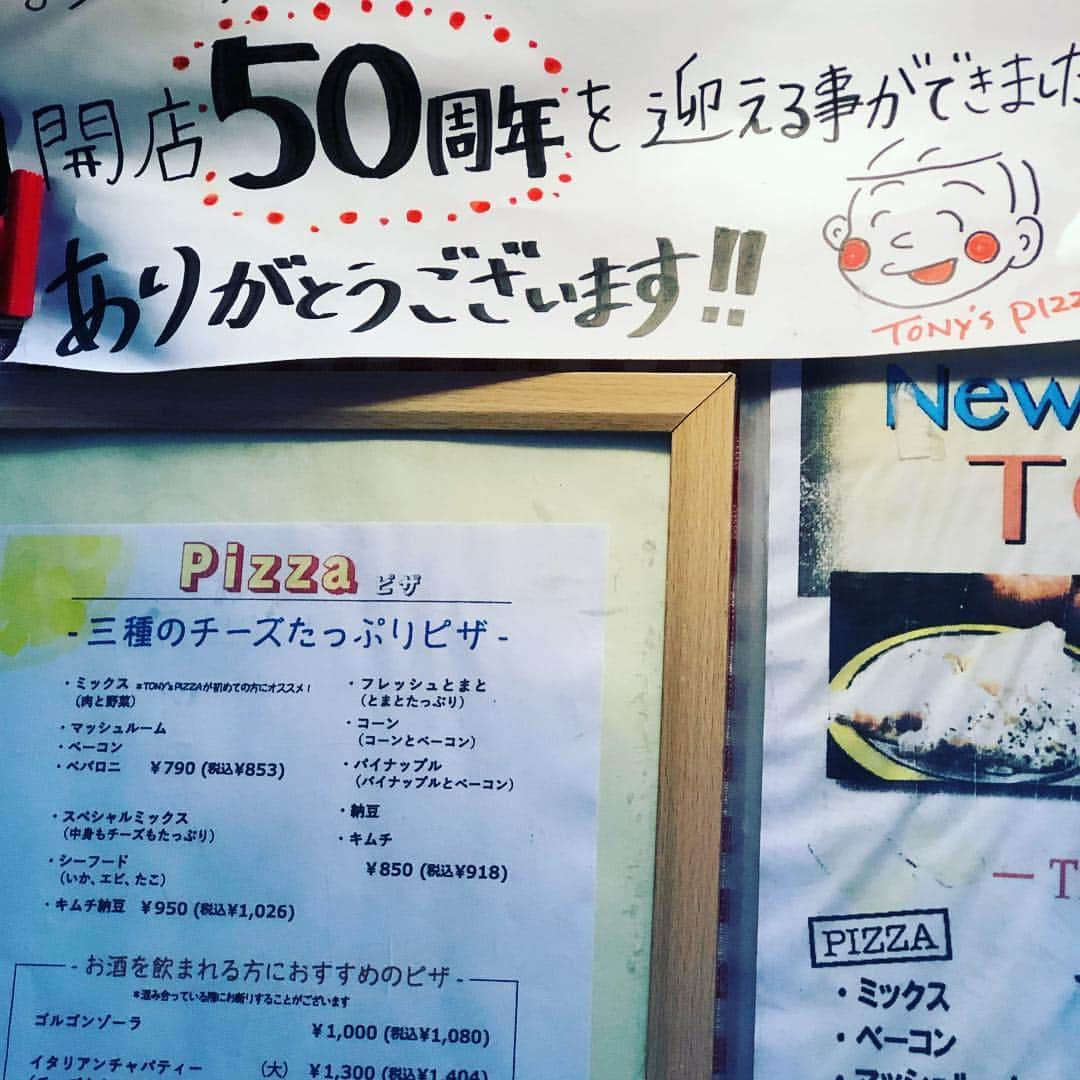 開店50周年を迎える事ができました
ありがとうございます!!
TONY's PIZZ
Pizza ピザ
- 三種のチーズたっぷりピザ -
・ミックス ※TONY's PIZZAが初めての方にオススメ!
(肉と野菜)
・マッシュルーム
・ベーコン
・ペパロニ ¥790 (税込¥853)
・スペシャルミックス
(中身もチーズもたっぷり)
・シーフード
(いか、エビ、たこ)
・キムチ納豆 ¥950 (税込¥1,026)
・フレッシュとまと
(とまとたっぷり)
・コーン
(コーンとベーコン)
・パイナップル
(パイナップルとベーコン)
・納豆
・キムチ
¥850 (税込¥918)
- お酒を飲まれる方におすすめのピザ -
※混み合っている際にお断りすることがございます
ゴルゴンゾーラ ¥1,000 (税込¥1,080)
イタリアンチャパティー (大) ¥1,300 (税込¥1,404)
New
T
— T
PIZZA
・ミックス
・ベーコン
・マッシュルー